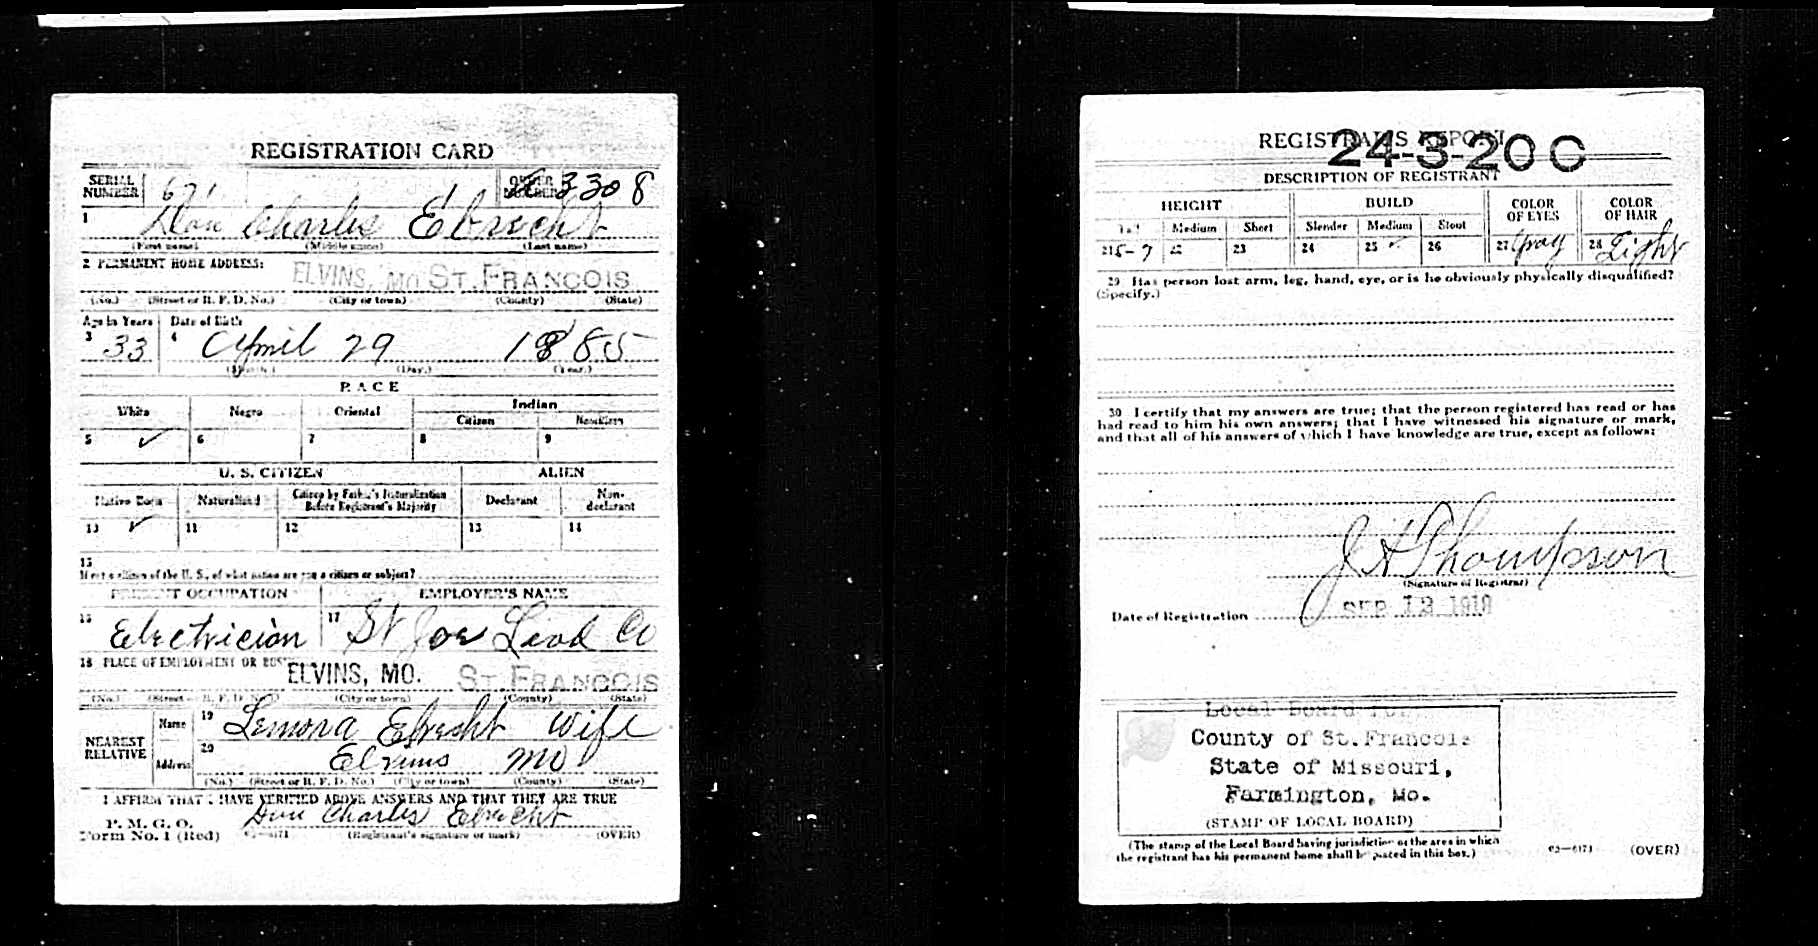 REGISTRATION CARD
SERIAL NUMBER 671 ORDER NUMBER 3308
1 Don Charles Ebrecht
(First name) (Middle name) (Last name)
2 PERMANENT HOME ADDRESS:
ELVINS, MO ST. FRANCOIS
(No.) (Street or R. F. D. No.) (City or town) (County) (State)
Age in Years Date of Birth
3 33 4 April 29 1885
(Month.) (Day.) (Year.)
RACE
White Negro Oriental Indian
Citizen Noncitizen
5 ✓ 6 7 8 9
U. S. CITIZEN ALIEN
Native Born Naturalized Citizen by Father's Naturalization Before Registrant's Majority Declarant Non-declarant
10 ✓ 11 12 13 14
15
If not a citizen of the U. S., of what nation are you a citizen or subject?
PRESENT OCCUPATION EMPLOYER'S NAME
16 Electrician 17 St Joe Lead Co
18 PLACE OF EMPLOYMENT OR BUSINESS
ELVINS, MO. ST. FRANCOIS
(No.) (Street or R. F. D. No.) (City or town) (County) (State)
NEAREST RELATIVE
Name 19 Lenora Ebrecht wife
Address 20 Elvins MO
(No.) (Street or R. F. D. No.) (City or town) (County) (State)
I AFFIRM THAT I HAVE VERIFIED ABOVE ANSWERS AND THAT THEY ARE TRUE
P. M. G. O.
Form No. 1 (Red) Don Charles Ebrecht
(Registrant's signature or mark) (OVER)
REGISTRAR'S REPORT
24-3-20 C
DESCRIPTION OF REGISTRANT
HEIGHT BUILD COLOR OF EYES COLOR OF HAIR
Tall Medium Short Slender Medium Stout
21 5-7 22 23 24 25 ✓ 26 27 Gray 28 Light
29 Has person lost arm, leg, hand, eye, or is he obviously physically disqualified?
(Specify.)
30 I certify that my answers are true; that the person registered has read or has
had read to him his own answers; that I have witnessed his signature or mark,
and that all of his answers of which I have knowledge are true, except as follows:
J A Thompson
(Signature of Registrar)
Date of Registration SEP 12 1918
Local Board for
County of St. Francois
State of Missouri,
Farmington, Mo.
(STAMP OF LOCAL BOARD)
(The stamp of the Local Board having jurisdiction of the area in which
the registrant has his permanent home shall be placed in this box.)
03—6171 (OVER)